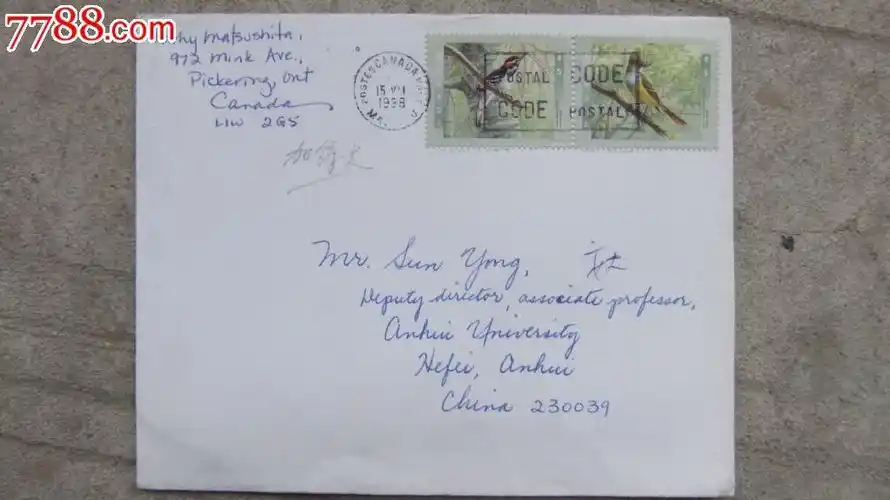 7788.com
Matsushita,
972 Mink Ave.,
Pickering, Ont
Canada
L1W 2G5
POSTES CANADA
15 VII
1998
POSTAL CODE
CODE POSTAL
加拿大
Mr. Sun Yong,
Deputy director, associate professor,
Anhui University
Hefei, Anhui
China 230039